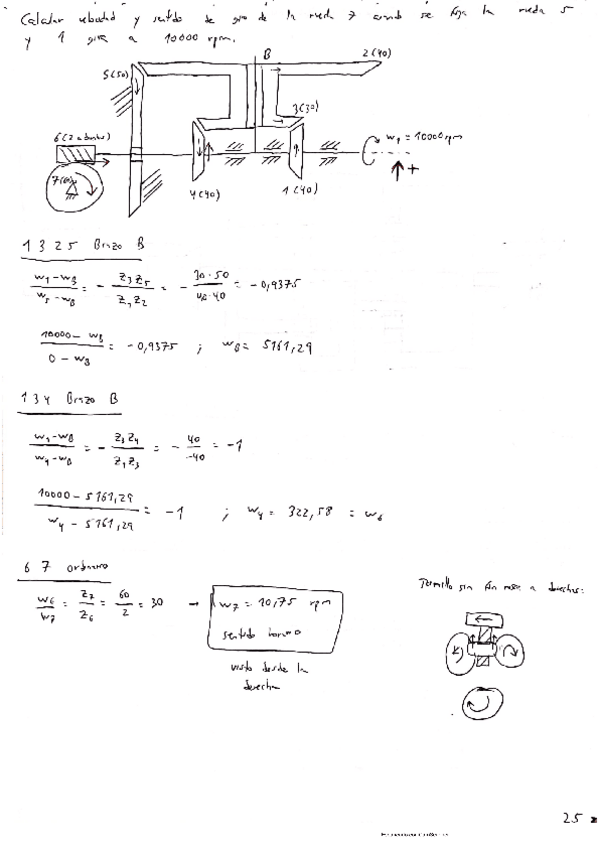 Calcular velocidad y sentido de giro de la rueda 7 cuando se fija la rueda 5
y 1 gira a 10000 rpm.
B
2(40)
5(50)
3(30)
6(2 entradas)
w1 = 10000 rpm
7(60)
4(40)
1(40)
+
1 3 2 5 Brazo B
w1-wB / w5-wB = - z3 z5 / z1 z2 = - 30·50 / 40·40 = -0,9375
10000 - wB / 0 - wB = -0,9375 ; wB = 5161,29
1 3 4 Brazo B
w1-wB / w4-wB = - z3 z4 / z1 z3 = - 40 / 40 = -1
10000 - 5161,29 / w4 - 5161,29 = -1 ; w4 = 322,58 = w6
6 7
w6 / w7 = z7 / z6 = 60 / 2 = 30 → w7 = 10,75 rpm
sentido horario
visto desde la
derecha
Tornillo sin fin a derechas:
25